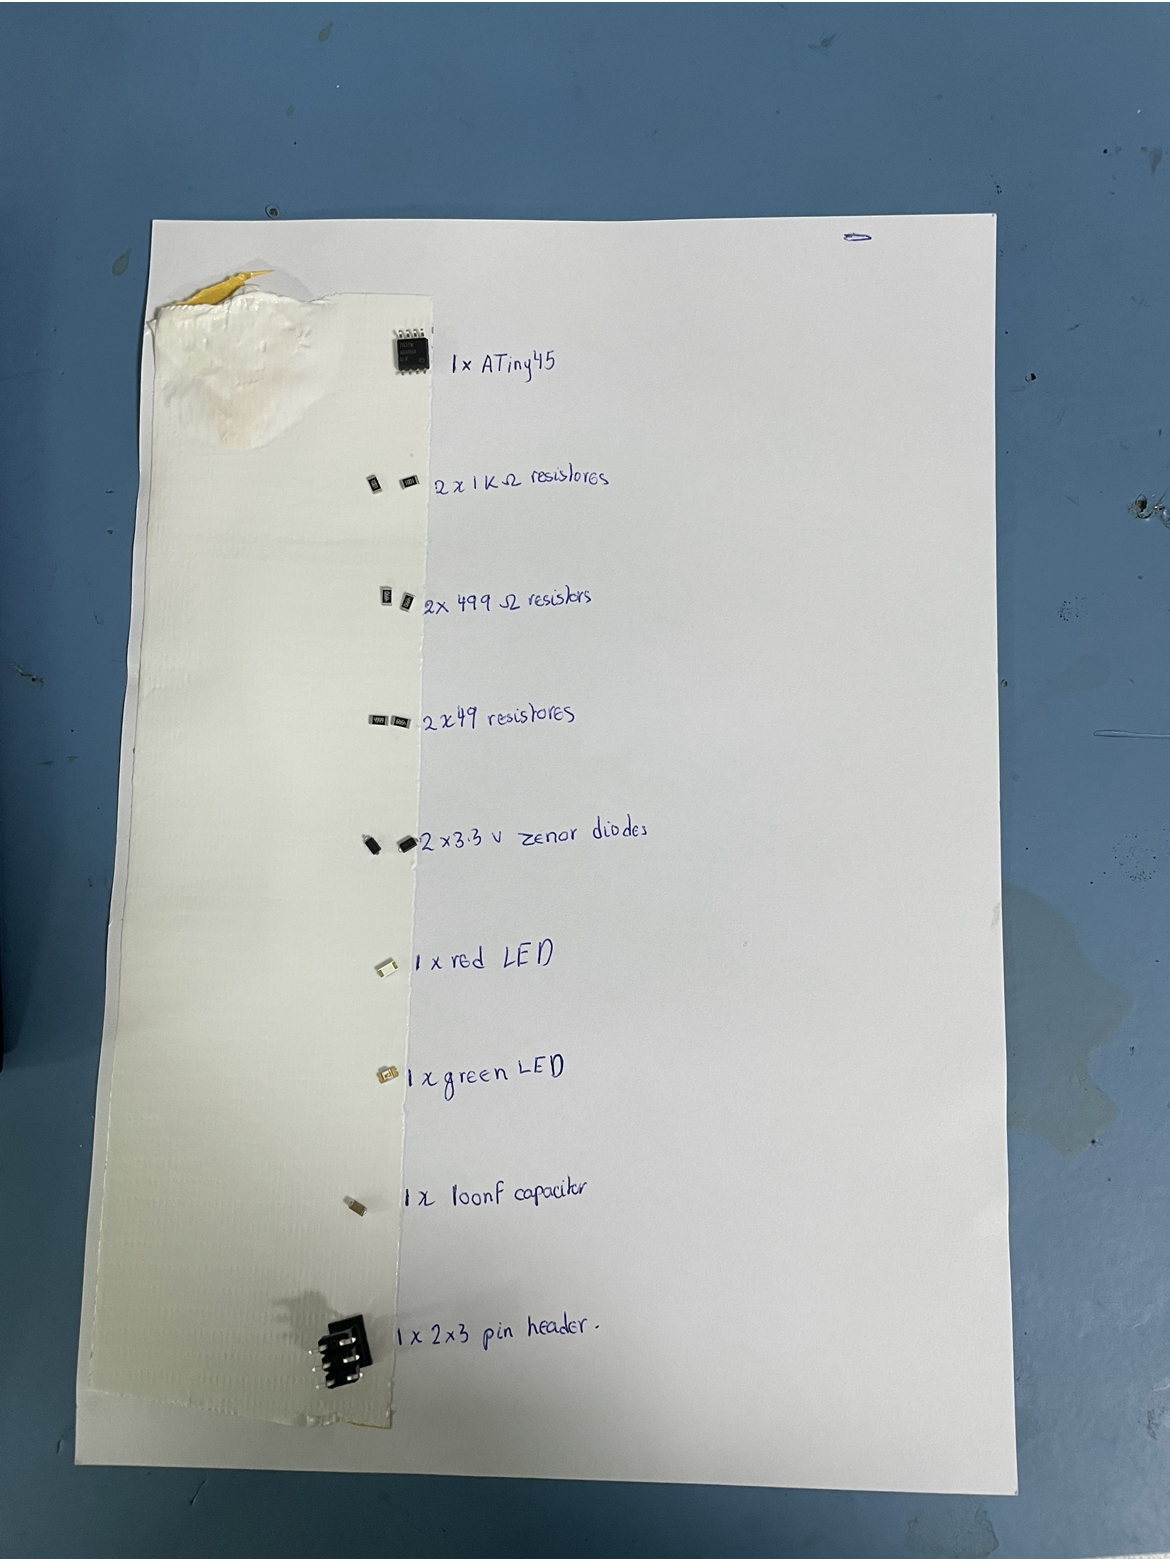 1x ATiny45
2x1KΩ resistores
2x 499 Ω resistors
2x49 resistores
2x3.3 v zenor diodes
1x red LED
1x green LED
1x 100nf capacitor
1x 2x3 pin header.